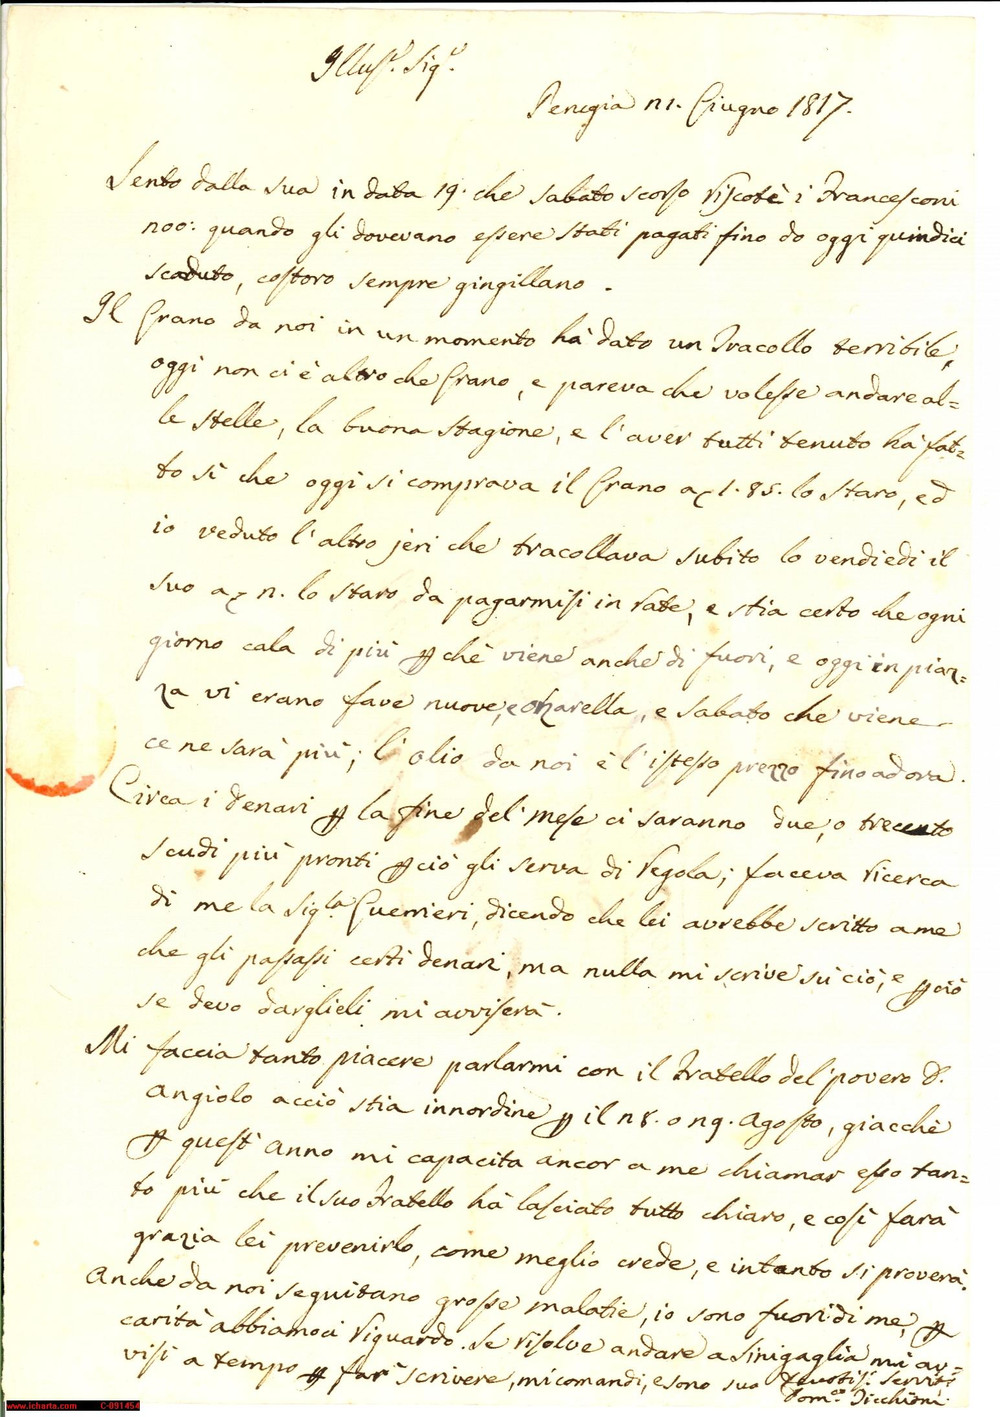 Illus.e Sig.e
Perugia 21. Giugno 1817.
Sento dalla sua in data 19. che sabato scorso riscotè i Francesconi
200: quando gli dovevano essere stati pagati fino da oggi quindici
scaduto, costoro sempre gingillano.
Il Grano da noi in un momento hà dato un Tracollo terribile,
oggi non ci è altro che Grano, e pareva che volesse andare al=
le stelle, la buona stagione, e l'aver tutti tenuto hà fat=
to sì che oggi si comprava il Grano a 1.85. lo staro, ed
io veduto l'altro jeri che tracollava subito lo vendiedi il
suo a 2. lo staro da pagarmisi in rate, e stia certo che ogni
giorno cala di più perchè viene anche di fuori, e oggi in piaz=
za vi erano fave nuove, e orzarella, e sabato che viene
ce ne sarà più; l'olio da noi è l'istesso prezzo fino ad ora.
Circa i denari per la fine del mese ci saranno due, o trecento
scudi più pronti perciò gli serva di regola; faceva ricerca
di me la Sig.la Guerrieri, dicendo che lei avrebbe scritto a me
che gli passassi certi denari, ma nulla mi scrive sù ciò, e perciò
se devo darglieli mi avviserà.
Mi faccia tanto piacere parlarmi con il Fratello del povero D.
Angiolo acciò stia innordine per il 28. o 29. Agosto, giacchè
per quest'anno mi capacita ancor a me chiamar esso tan=
to più che il suo Fratello hà lasciato tutto chiaro, e così farà
grazia lei prevenirlo, come meglio crede, e intanto si proverà.
Anche da noi seguitano grosse malatie, io sono fuori di me, per
carità abbiamoci riguardo. Se risolve andare a Sinigaglia mi av=
visi a tempo per far scrivere, mi comandi, e sono suo
Devotis.o Servit.e
Dom.co Ticchioni
www.icharta.com C-091454